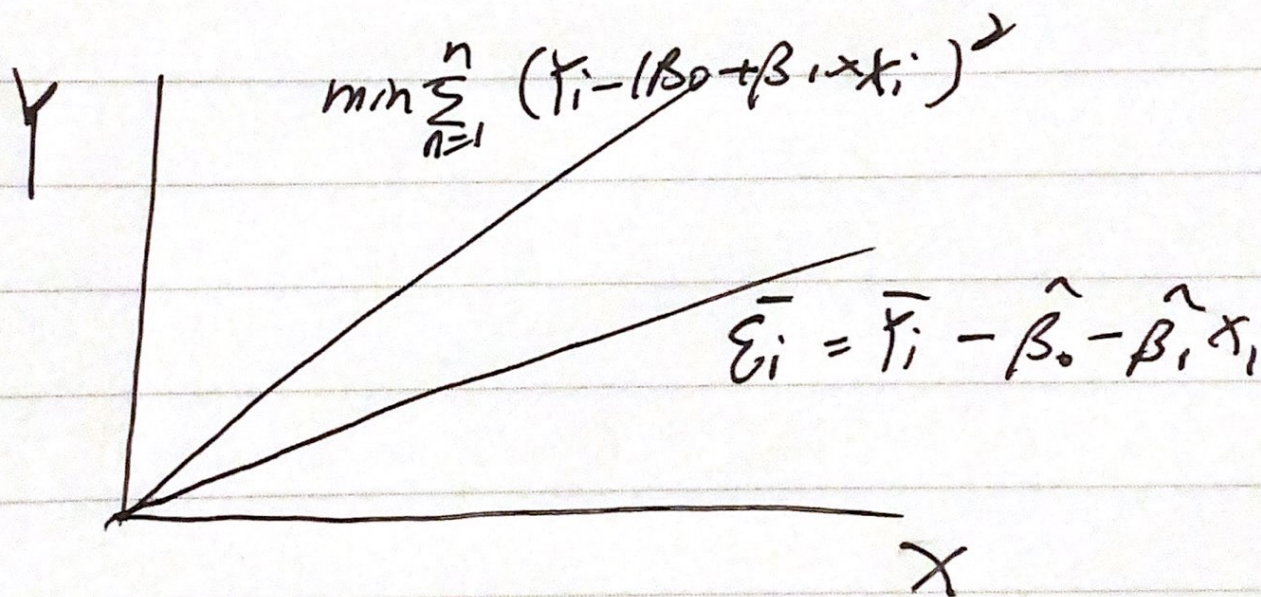 Y
min ∑ⁿₙ₌₁ (Yᵢ-(β₀+β₁×Xᵢ)²
ε̄ᵢ = Ȳᵢ - β̂₀ - β̂₁X₁
X